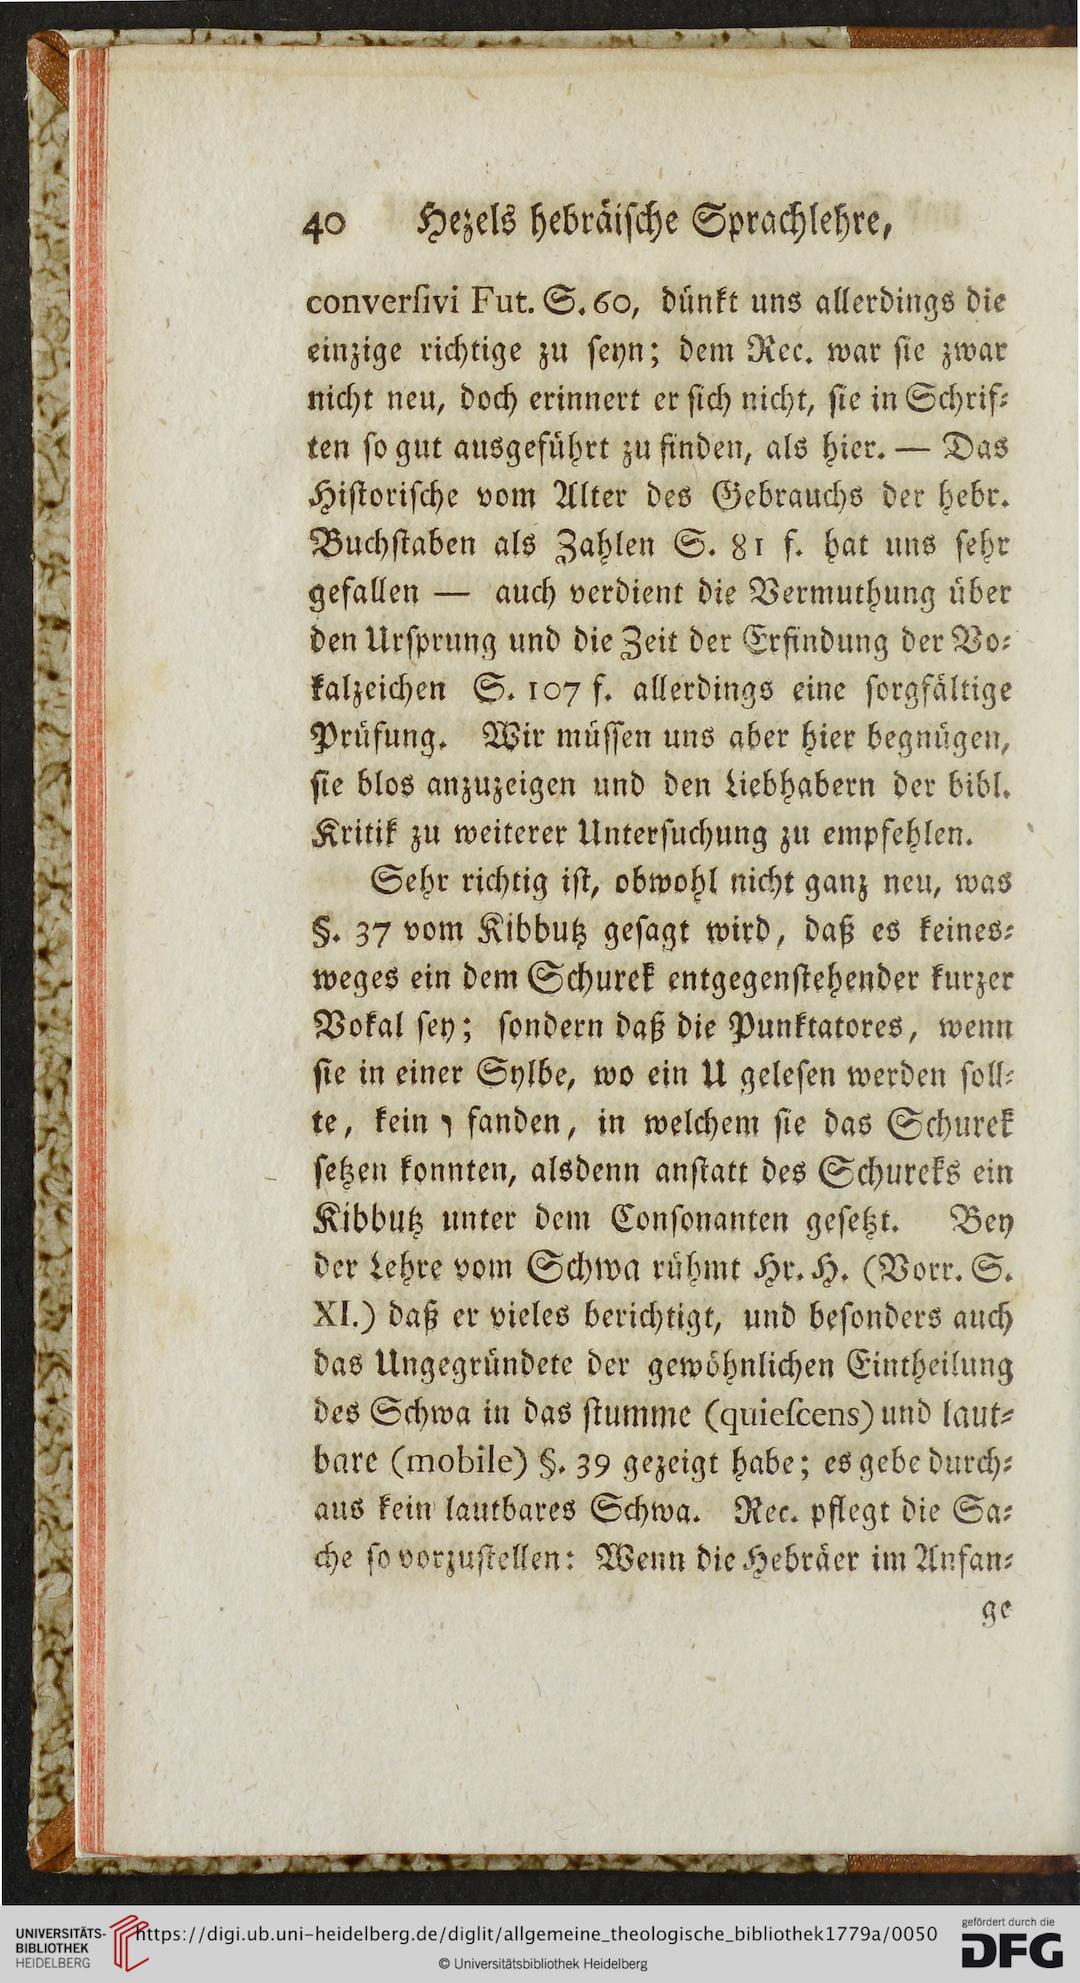 40 Hezels hebräische Sprachlehre,
converſivi Fut. S. 60, dünkt uns allerdings die
einzige richtige zu ſeyn; dem Rec. war ſie zwar
nicht neu, doch erinnert er ſich nicht, ſie in Schrif⸗
ten ſo gut ausgeführt zu finden, als hier. — Das
Hiſtoriſche vom Alter des Gebrauchs der hebr.
Buchſtaben als Zahlen S. 81 f. hat uns ſehr
gefallen — auch verdient die Vermuthung über
den Urſprung und die Zeit der Erfindung der Vo⸗
kalzeichen S. 107 f. allerdings eine ſorgfältige
Prüfung. Wir müſſen uns aber hier begnügen,
ſie blos anzuzeigen und den Liebhabern der bibl.
Kritik zu weiterer Unterſuchung zu empfehlen.
Sehr richtig iſt, obwohl nicht ganz neu, was
§. 37 vom Kibbutz geſagt wird, daß es keines⸗
weges ein dem Schurek entgegenſtehender kurzer
Vokal ſey; ſondern daß die Punktatores, wenn
ſie in einer Sylbe, wo ein U geleſen werden ſoll⸗
te, kein ו fanden, in welchem ſie das Schurek
ſetzen konnten, alsdenn anſtatt des Schureks ein
Kibbutz unter dem Conſonanten geſetzt. Bey
der Lehre vom Schwa rühmt Hr. H. (Vorr. S.
XI.) daß er vieles berichtigt, und beſonders auch
das Ungegründete der gewöhnlichen Eintheilung
des Schwa in das ſtumme (quieſcens) und laut⸗
bare (mobile) §. 39 gezeigt habe; es gebe durch⸗
aus kein lautbares Schwa. Rec. pflegt die Sa⸗
che ſo vorzuſtellen: Wenn die Hebräer im Anfan⸗
ge
UNIVERSITÄTS-
BIBLIOTHEK
HEIDELBERG
https://digi.ub.uni-heidelberg.de/diglit/allgemeine_theologische_bibliothek1779a/0050
© Universitätsbibliothek Heidelberg
gefördert durch die
DFG